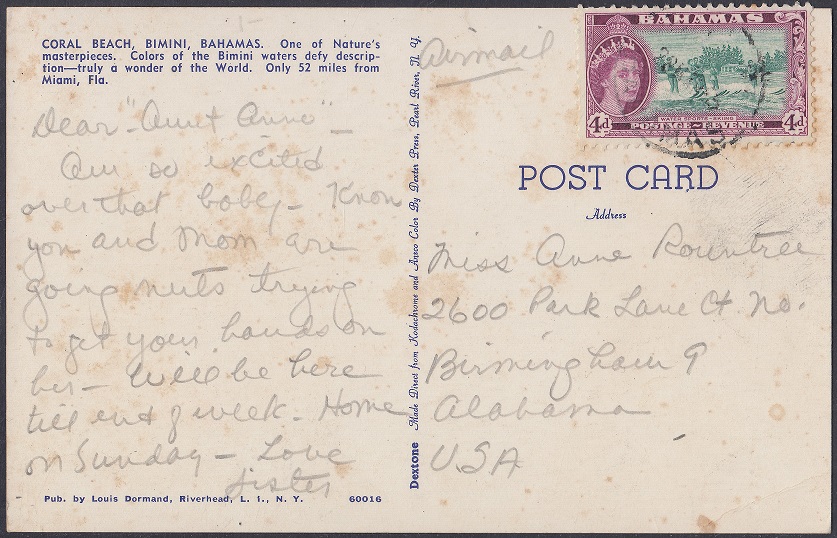 CORAL BEACH, BIMINI, BAHAMAS. One of Nature's
masterpieces. Colors of the Bimini waters defy descrip-
tion—truly a wonder of the World. Only 52 miles from
Miami, Fla.
Dear "Aunt Anne" –
Am so excited
over that baby – Know
you and Mom are
going nuts trying
to get your hands on
her – Will be here
till end of week. Home
on Sunday – Love
Sister
Pub. by Louis Dormand, Riverhead, L. I., N. Y. 60016
Dextone Made Direct from Kodachrome and Ansco Color By Dexter Press, Pearl River, N. Y.
Airmail
BAHAMAS
4d
POSTAGE REVENUE
4d
POST CARD
Address
Miss Anne Rountree
2600 Park Lane Ct No.
Birmingham 9
Alabama
USA